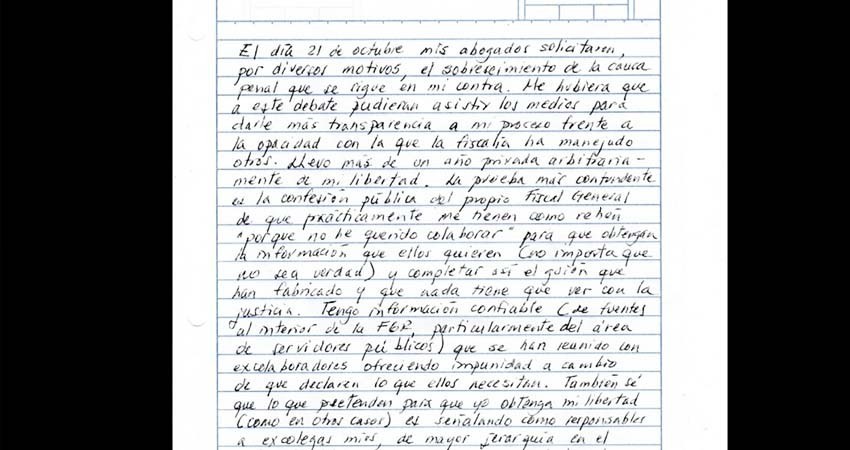 El día 21 de octubre mis abogados solicitaron,
por diversos motivos, el sobreseimiento de la causa
penal que se sigue en mi contra. Me hubiera que
a este debate pudieran asistir los medios para
darle más transparencia a mi proceso frente a
la opacidad con la que la fiscalía ha manejado
otros. Llevo más de un año privada arbitraria-
mente de mi libertad. La prueba más contundente
es la confesión pública del propio Fiscal General
de que prácticamente me tienen como rehén
"porque no he querido colaborar" para que obtengan
la información que ellos quieren (no importa que
no sea verdad) y completar así el guión que
han fabricado y que nada tiene que ver con la
justicia. Tengo información confiable (de fuentes
al interior de la FGR, particularmente del área
de servidores públicos) que se han reunido con
excolaboradores ofreciendo impunidad a cambio
de que declaren lo que ellos necesitan. También sé
que lo que pretenden para que yo obtenga mi libertad
(como en otros casos) es señalando como responsables
a excolegas míos, de mayor jerarquía en el